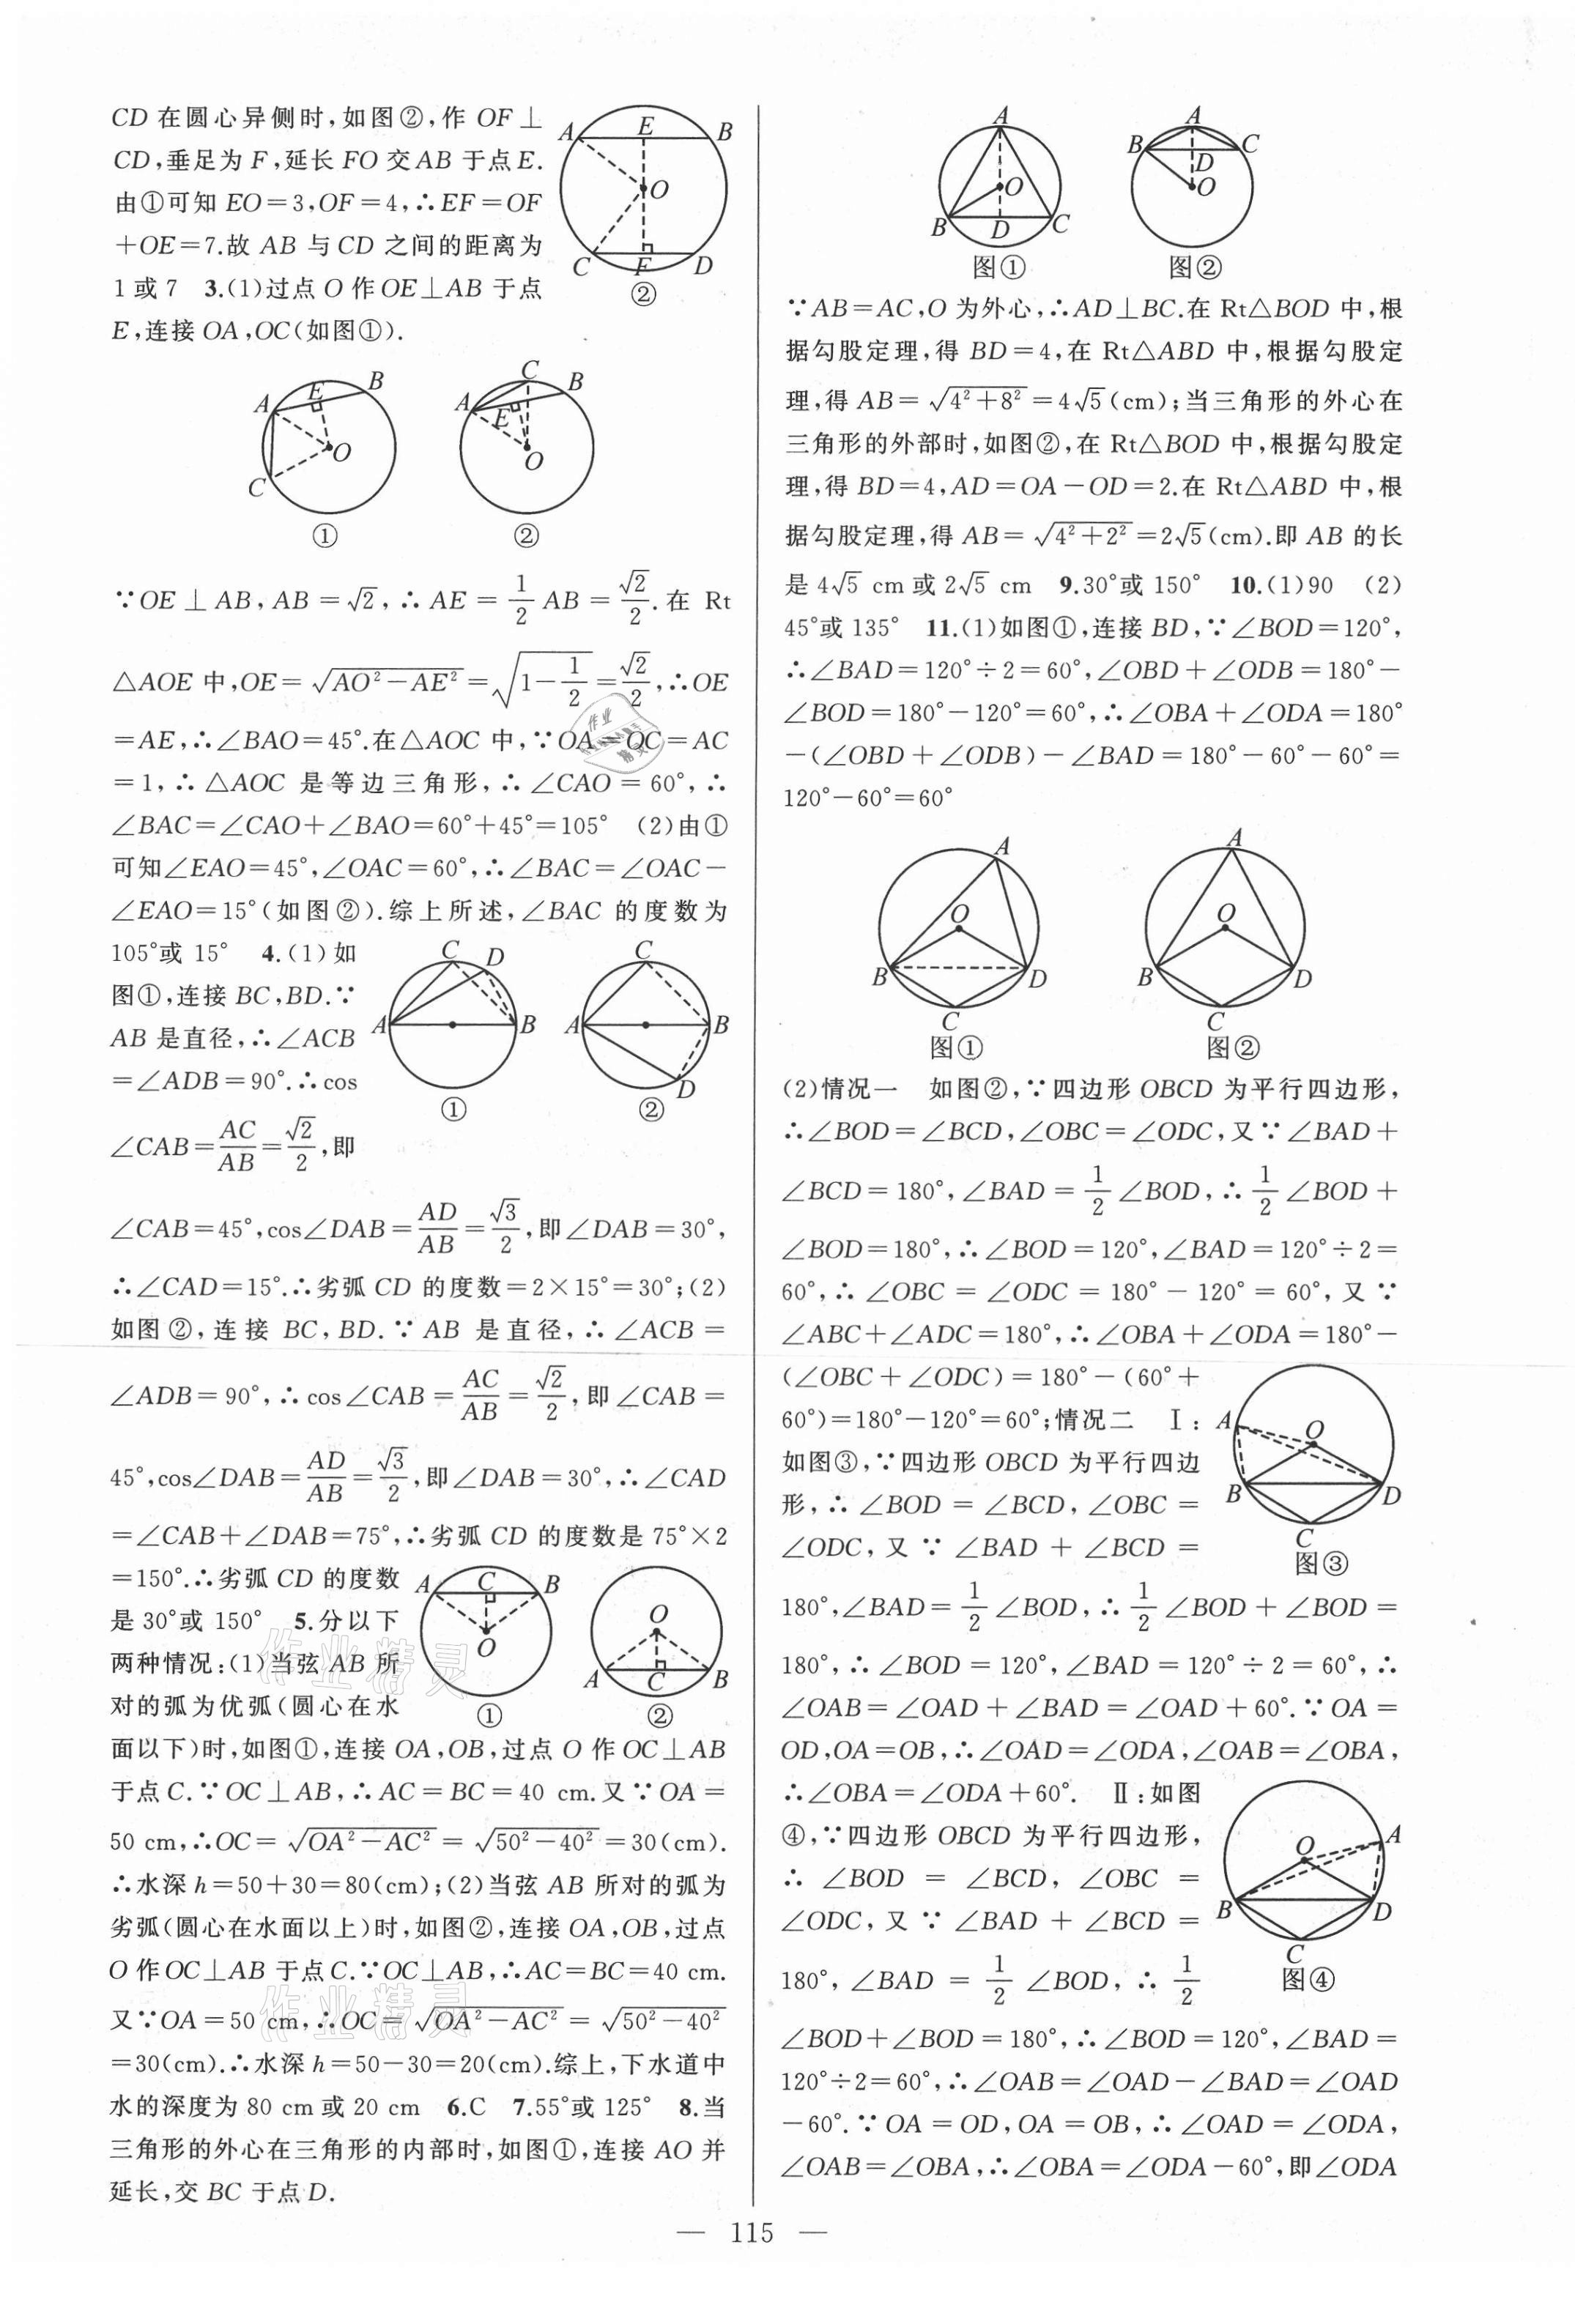 CD 在圆心异侧时,如图②,作 OF⊥
CD,垂足为 F,延长 FO 交 AB 于点 E.
由①可知 EO=3,OF=4,∴EF=OF
+OE=7.故 AB 与 CD 之间的距离为
1 或 7 3.(1)过点 O 作 OE⊥AB 于点
E,连接 OA,OC(如图①).
A E B
O
C F D
②
A E B
O
C
①
C
A B
E
O
②
∵OE⊥AB, AB=√2, ∴AE=1/2 AB=√2/2.在 Rt
△AOE 中,OE=√(AO²-AE²)=√(1-1/2)=√2/2,∴OE
=AE,∴∠BAO=45°.在△AOC 中,∵OA=OC=AC
=1,∴△AOC 是等边三角形,∴∠CAO=60°,∴
∠BAC=∠CAO+∠BAO=60°+45°=105° (2)由①
可知∠EAO=45°,∠OAC=60°,∴∠BAC=∠OAC-
∠EAO=15°(如图②).综上所述,∠BAC 的度数为
105°或 15° 4.(1)如
图①,连接 BC,BD.∵
AB 是直径,∴∠ACB
=∠ADB=90°.∴cos
∠CAB=AC/AB=√2/2,即
C D
A B
①
C
A B
D
②
∠CAB=45°,cos∠DAB=AD/AB=√3/2,即∠DAB=30°,
∴∠CAD=15°.∴劣弧 CD 的度数=2×15°=30°;(2)
如图②,连接 BC,BD.∵AB 是直径,∴∠ACB=
∠ADB=90°,∴cos∠CAB=AC/AB=√2/2,即∠CAB=
45°,cos∠DAB=AD/AB=√3/2,即∠DAB=30°,∴∠CAD
=∠CAB+∠DAB=75°,∴劣弧 CD 的度数是 75°×2
=150°.∴劣弧 CD 的度数
是 30°或 150° 5.分以下
两种情况:(1)当弦 AB 所
对的弧为优弧(圆心在水
A C B
O
①
O
A C B
②
面以下)时,如图①,连接 OA,OB,过点 O 作 OC⊥AB
于点 C.∵OC⊥AB,∴AC=BC=40 cm.又∵OA=
50 cm,∴OC=√(OA²-AC²)=√(50²-40²)=30(cm).
∴水深 h=50+30=80(cm);(2)当弦 AB 所对的弧为
劣弧(圆心在水面以上)时,如图②,连接 OA,OB,过点
O 作 OC⊥AB 于点 C.∵OC⊥AB,∴AC=BC=40 cm.
又∵OA=50 cm,∴OC=√(OA²-AC²)=√(50²-40²)
=30(cm).∴水深 h=50-30=20(cm).综上,下水道中
水的深度为 80 cm 或 20 cm 6.C 7.55°或 125° 8.当
三角形的外心在三角形的内部时,如图①,连接 AO 并
延长,交 BC 于点 D.
A
O
B D C
图①
A
B C
D
O
图②
∵AB=AC,O 为外心,∴AD⊥BC.在 Rt△BOD 中,根
据勾股定理,得 BD=4,在 Rt△ABD 中,根据勾股定
理,得 AB=√(4²+8²)=4√5(cm);当三角形的外心在
三角形的外部时,如图②,在 Rt△BOD 中,根据勾股定
理,得 BD=4,AD=OA-OD=2.在 Rt△ABD 中,根
据勾股定理,得 AB=√(4²+2²)=2√5(cm).即 AB 的长
是 4√5 cm 或 2√5 cm 9.30°或 150° 10.(1)90 (2)
45°或 135° 11.(1)如图①,连接 BD,∵∠BOD=120°,
∴∠BAD=120°÷2=60°,∠OBD+∠ODB=180°-
∠BOD=180°-120°=60°,∴∠OBA+∠ODA=180°
-(∠OBD+∠ODB)-∠BAD=180°-60°-60°=
120°-60°=60°
A
O
B D
C
图①
A
O
B D
C
图②
(2)情况一 如图②,∵四边形 OBCD 为平行四边形,
∴∠BOD=∠BCD,∠OBC=∠ODC,又∵∠BAD+
∠BCD=180°,∠BAD=1/2∠BOD,∴1/2∠BOD+
∠BOD=180°,∴∠BOD=120°,∠BAD=120°÷2=
60°,∴∠OBC=∠ODC=180°-120°=60°,又∵
∠ABC+∠ADC=180°,∴∠OBA+∠ODA=180°-
(∠OBC+∠ODC)=180°-(60°+
60°)=180°-120°=60°;情况二 Ⅰ:
如图③,∵四边形 OBCD 为平行四边
形,∴∠BOD=∠BCD,∠OBC=
∠ODC,又∵∠BAD+∠BCD=
A
O
B D
C
图③
180°,∠BAD=1/2∠BOD,∴1/2∠BOD+∠BOD=
180°,∴∠BOD=120°,∠BAD=120°÷2=60°,∴
∠OAB=∠OAD+∠BAD=∠OAD+60°.∵OA=
OD,OA=OB,∴∠OAD=∠ODA,∠OAB=∠OBA,
∴∠OBA=∠ODA+60°. Ⅱ:如图
④,∵四边形 OBCD 为平行四边形,
∴∠BOD=∠BCD,∠OBC=
∠ODC,又∵∠BAD+∠BCD=
180°,∠BAD=1/2∠BOD,∴1/2
A
O
B D
C
图④
∠BOD+∠BOD=180°,∴∠BOD=120°,∠BAD=
120°÷2=60°,∴∠OAB=∠OAD-∠BAD=∠OAD
-60°.∵OA=OD,OA=OB,∴∠OAD=∠ODA,
∠OAB=∠OBA,∴∠OBA=∠ODA-60°,即∠ODA
作业精灵
作业精灵
作业精灵
— 115 —